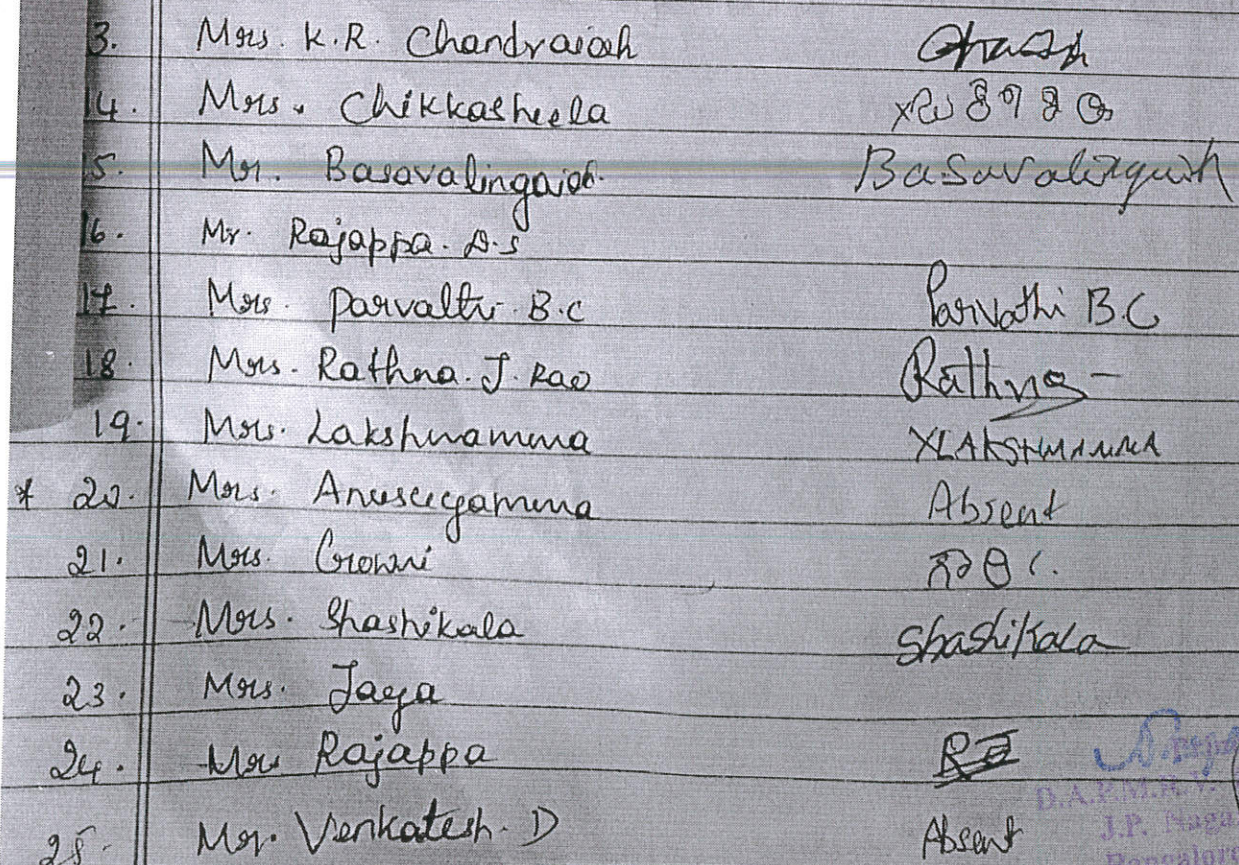 13. Mrs. K.R. Chandraiah
14. Mrs. Chikkasheela
15. Mr. Basavalingaiah. Basavalingaiah
16. Mr. Rajappa. D.S
17. Mrs. Parvathi B.C Parvathi B.C
18. Mrs. Rathna. J. Rao Rathna
19. Mrs. Lakshmamma XLAKSHMAMMA
* 20. Mrs. Anusuyamma Absent
21. Mrs. Gowri ಗೌರಿ.
22. Mrs. Shashikala Shashikala
23. Mrs. Jaya
24. Mr. Rajappa
25. Mr. Venkatesh. D Absent
D.A.P.M.R.V.
J.P. Naga
Bangalore